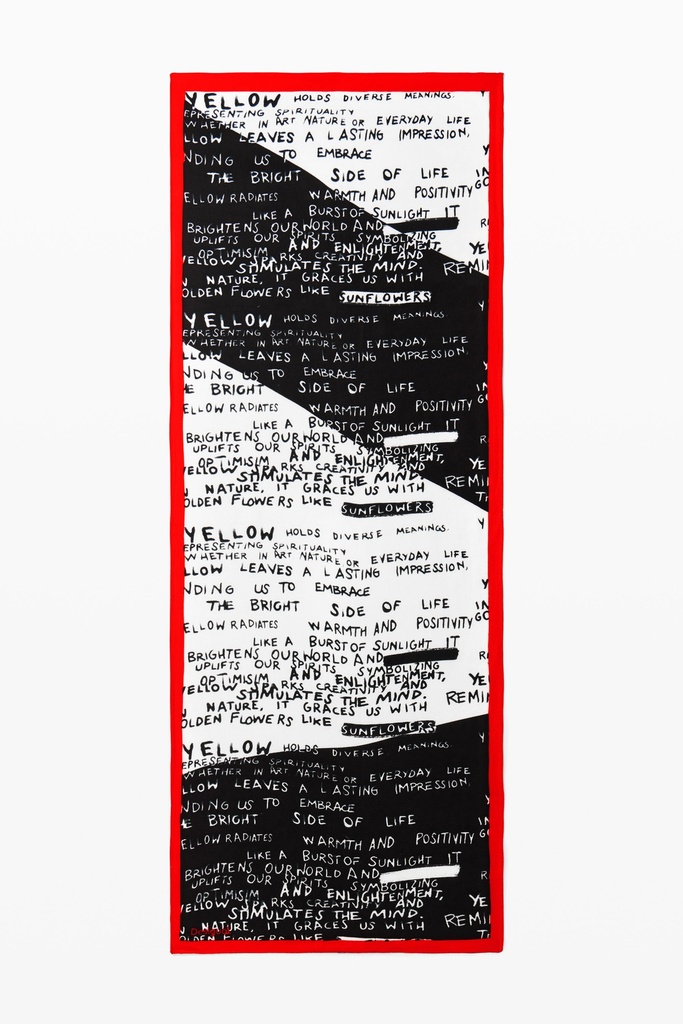 YELLOW HOLDS DIVERSE MEANINGS.
EPRESENTING SPIRITUALITY
WHETHER IN ART NATURE OR EVERYDAY LIFE
LLOW LEAVES A LASTING IMPRESSION,
NDING US TO EMBRACE
THE BRIGHT SIDE OF LIFE IN
ELLOW RADIATES WARMTH AND POSITIVITY GO
LIKE A BURST OF SUNLIGHT IT
BRIGHTENS OUR WORLD AND R
UPLIFTS OUR SPIRITS SYMBOLIZING
OPTIMISIM AND ENLIGHTENMENT, YE
YELLOW SPARKS CREATIVITY AND
STIMULATES THE MIND. REMI
N NATURE, IT GRACES US WITH
OLDEN FLOWERS LIKE SUNFLOWERS
YELLOW HOLDS DIVERSE MEANINGS. Y
EPRESENTING SPIRITUALITY
WHETHER IN ART NATURE OR EVERYDAY LIFE
LLOW LEAVES A LASTING IMPRESSION,
NDING US TO EMBRACE
E BRIGHT SIDE OF LIFE IN
ELLOW RADIATES WARMTH AND POSITIVITY G
LIKE A BURST OF SUNLIGHT IT
BRIGHTENS OUR WORLD AND R
UPLIFTS OUR SPIRITS SYMBOLIZING
OPTIMISIM AND ENLIGHTENMENT, YE
YELLOW SPARKS CREATIVITY AND
STIMULATES THE MIND. REMI
N NATURE, IT GRACES US WITH
OLDEN FLOWERS LIKE SUNFLOWERS
YELLOW HOLDS DIVERSE MEANINGS. Y
EPRESENTING SPIRITUALITY
WHETHER IN ART NATURE OR EVERYDAY LIFE
LLOW LEAVES A LASTING IMPRESSION,
NDING US TO EMBRACE
THE BRIGHT SIDE OF LIFE IN
ELLOW RADIATES WARMTH AND POSITIVITY GO
LIKE A BURST OF SUNLIGHT IT
BRIGHTENS OUR WORLD AND R
UPLIFTS OUR SPIRITS SYMBOLIZING
OPTIMISIM AND ENLIGHTENMENT, YE
YELLOW SPARKS CREATIVITY AND
STIMULATES THE MIND. REMI
N NATURE, IT GRACES US WITH
OLDEN FLOWERS LIKE SUNFLOWERS
YELLOW HOLDS DIVERSE MEANINGS. Y
EPRESENTING SPIRITUALITY
WHETHER IN ART NATURE OR EVERYDAY LIFE
LLOW LEAVES A LASTING IMPRESSION,
NDING US TO EMBRACE
E BRIGHT SIDE OF LIFE IN
ELLOW RADIATES WARMTH AND POSITIVITY G
LIKE A BURST OF SUNLIGHT IT
BRIGHTENS OUR WORLD AND R
UPLIFTS OUR SPIRITS SYMBOLIZING
OPTIMISIM AND ENLIGHTENMENT, YE
YELLOW SPARKS CREATIVITY AND
STIMULATES THE MIND. REMI
N NATURE, IT GRACES US WITH
OLDEN FLOWERS LIKE